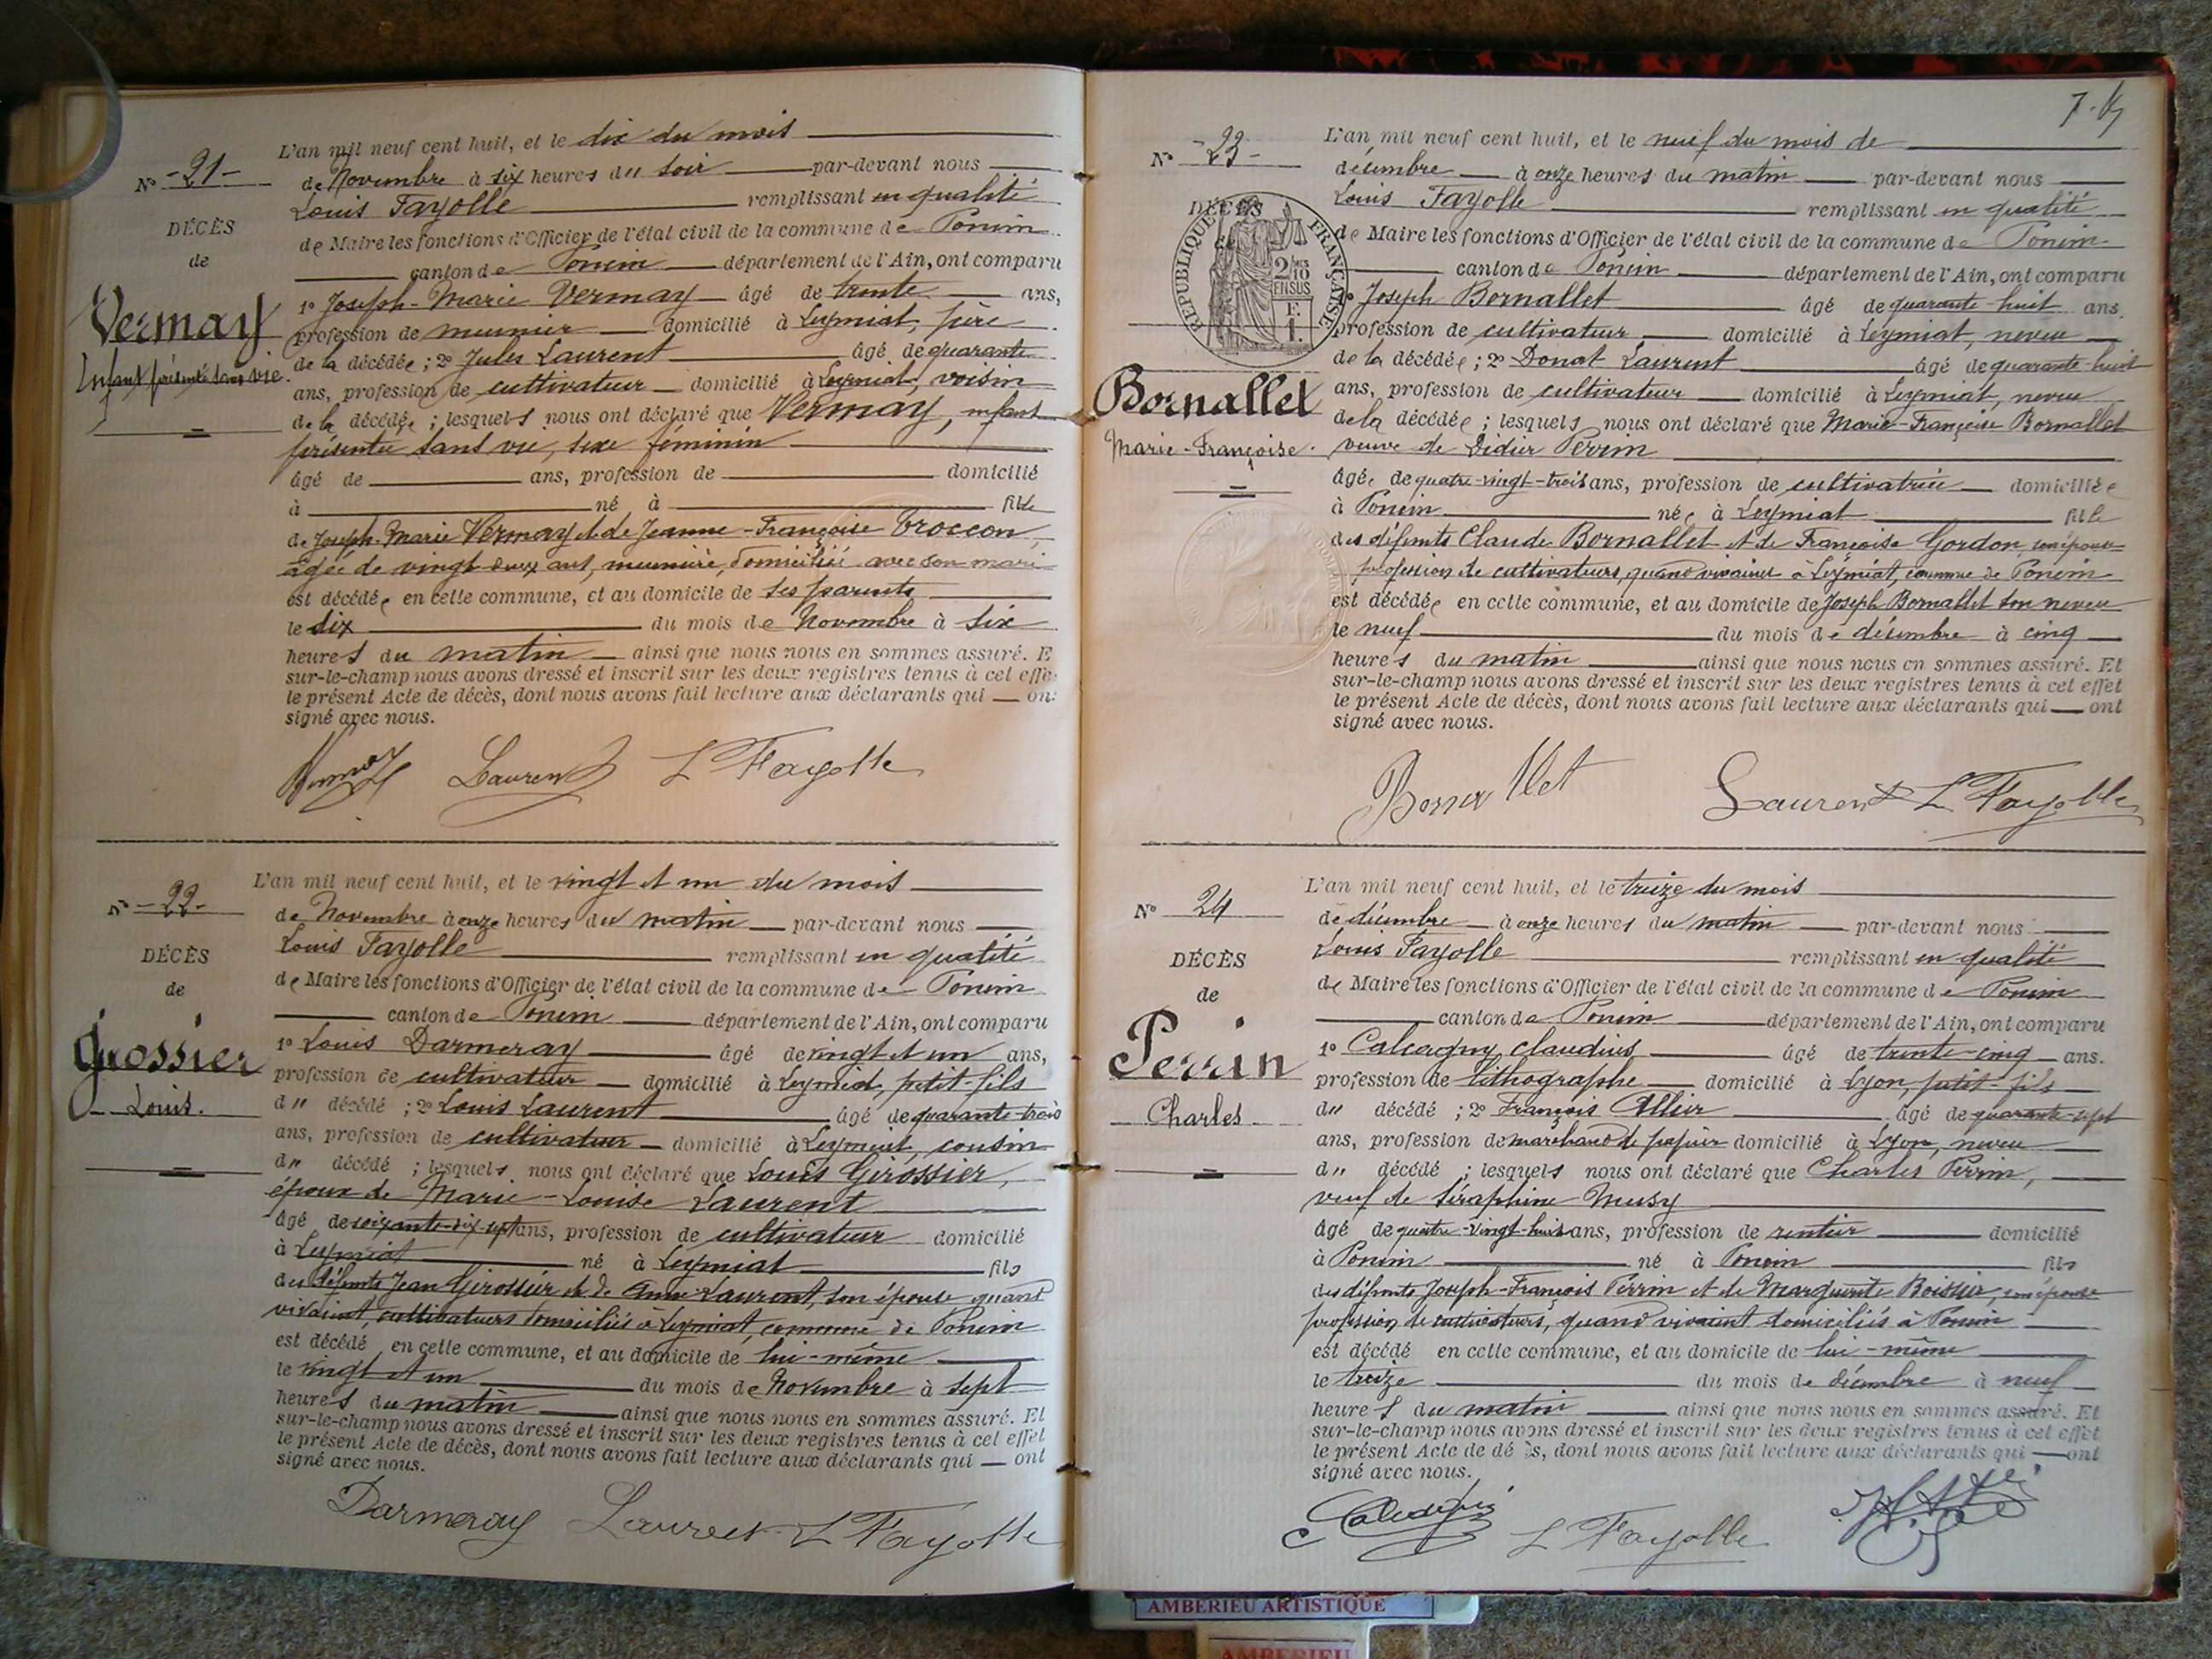 N° -21-
DÉCÈS
de
Vermay
Enfant présenté sans vie.
L'an mil neuf cent huit, et le dix du mois
de Novembre à six heures du soir par-devant nous
Louis Fayolle remplissant en qualité
de Maire les fonctions d'Officier de l'état civil de la commune de Poncin
canton de Poncin département de l'Ain, ont comparu
1° Joseph-Marie Vermay âgé de trente ans,
profession de meunier domicilié à Leymiat, père
de la décédée ; 2° Jules Laurent âgé de quarante
ans, profession de cultivateur domicilié à Leymiat, voisin
de la décédée ; lesquels nous ont déclaré que Vermay, enfant
présentée sans vie, sexe féminin
âgé de ans, profession de domicilié
à né à fille
de Joseph-Marie Vermay et de Jeanne-Françoise Troccon,
âgée de vingt deux ans, meunière, domiciliée avec son mari
est décédée en cette commune, et au domicile de ses parents
le dix du mois de Novembre à six
heures du matin ainsi que nous nous en sommes assuré. E
sur-le-champ nous avons dressé et inscrit sur les deux registres tenus à cet effe
le présent Acte de décès, dont nous avons fait lecture aux déclarants qui ont
signé avec nous.
Vermay Laurent L Fayolle
N° -22-
DÉCÈS
de
Girossier
Louis.
L'an mil neuf cent huit, et le vingt et un du mois
de Novembre à onze heures du matin par-devant nous
Louis Fayolle remplissant en qualité
de Maire les fonctions d'Officier de l'état civil de la commune de Poncin
canton de Poncin département de l'Ain, ont comparu
1° Louis Darmeray âgé de vingt et un ans,
profession de cultivateur domicilié à Leymiat, petit-fils
du décédé ; 2° Louis Laurent âgé de quarante-trois
ans, profession de cultivateur domicilié à Leymiat, cousin
du décédé ; lesquels nous ont déclaré que Louis Girossier,
époux de Marie-Louise Laurent
âgé de soixante-dix-sept ans, profession de cultivateur domicilié
à Leymiat né à Leymiat fils
des défunts Jean Girossier et de Anne Laurent, son épouse quand
vivaient, cultivateurs domiciliés à Leymiat, commune de Poncin
est décédé en cette commune, et au domicile de lui-même
le vingt et un du mois de Novembre à sept
heures du matin ainsi que nous nous en sommes assuré. Et
sur-le-champ nous avons dressé et inscrit sur les deux registres tenus à cet effet
le présent Acte de décès, dont nous avons fait lecture aux déclarants qui ont
signé avec nous.
Darmeray Laurent L Fayolle
N° -23-
DÉCÈS
de
RÉPUBLIQUE FRANÇAISE
2/10
EN SUS
F.
1.
Bornallet
Marie-Françoise.
L'an mil neuf cent huit, et le neuf du mois de
décembre à onze heures du matin par-devant nous
Louis Fayolle remplissant en qualité
de Maire les fonctions d'Officier de l'état civil de la commune de Poncin
canton de Poncin département de l'Ain, ont comparu
1° Joseph Bornallet âgé de quarante-huit ans.
profession de cultivateur domicilié à Leymiat, neveu
de la décédée ; 2° Donat Laurent âgé de quarante-huit
ans, profession de cultivateur domicilié à Leymiat, neveu
de la décédée ; lesquels nous ont déclaré que Marie-Françoise Bornallet
veuve de Didier Perrin
âgée de quatre-vingt-trois ans, profession de cultivatrice domiciliée
à Poncin née à Leymiat fille
des défunts Claude Bornallet et de Françoise Gordon, son épouse
profession de cultivateurs, quand vivaient à Leymiat, commune de Poncin
est décédée en cette commune, et au domicile de Joseph Bornallet son neveu
le neuf du mois de décembre à cinq
heures du matin ainsi que nous nous en sommes assuré. Et
sur-le-champ nous avons dressé et inscrit sur les deux registres tenus à cet effet
le présent Acte de décès, dont nous avons fait lecture aux déclarants qui ont
signé avec nous.
Bornallet Laurent L Fayolle
N° 24
DÉCÈS
de
Perrin
Charles
L'an mil neuf cent huit, et le treize du mois
de décembre à onze heures du matin par-devant nous
Louis Fayolle remplissant en qualité
de Maire les fonctions d'Officier de l'état civil de la commune de Poncin
canton de Poncin département de l'Ain, ont comparu
1° Calcagny Claudius âgé de trente-cinq ans.
profession de lithographe domicilié à Lyon, petit-fils
du décédé ; 2° François Allier âgé de quarante-sept
ans, profession de marchand de papier domicilié à Lyon, neveu
du décédé ; lesquels nous ont déclaré que Charles Perrin,
veuf de Séraphine Musy
âgé de quatre-vingt-huit ans, profession de rentier domicilié
à Poncin né à Poncin fils
des défunts Joseph-François Perrin et de Marguerite Boissier, son épouse
profession de cultivateurs, quand vivaient domiciliés à Poncin
est décédé en cette commune, et au domicile de lui-même
le treize du mois de décembre à neuf
heures du matin ainsi que nous nous en sommes assuré. Et
sur-le-champ nous avons dressé et inscrit sur les deux registres tenus à cet effet
le présent Acte de décès, dont nous avons fait lecture aux déclarants qui ont
signé avec nous.
L Fayolle
AMBERIEU ARTISTIQUE
AMBERIEU